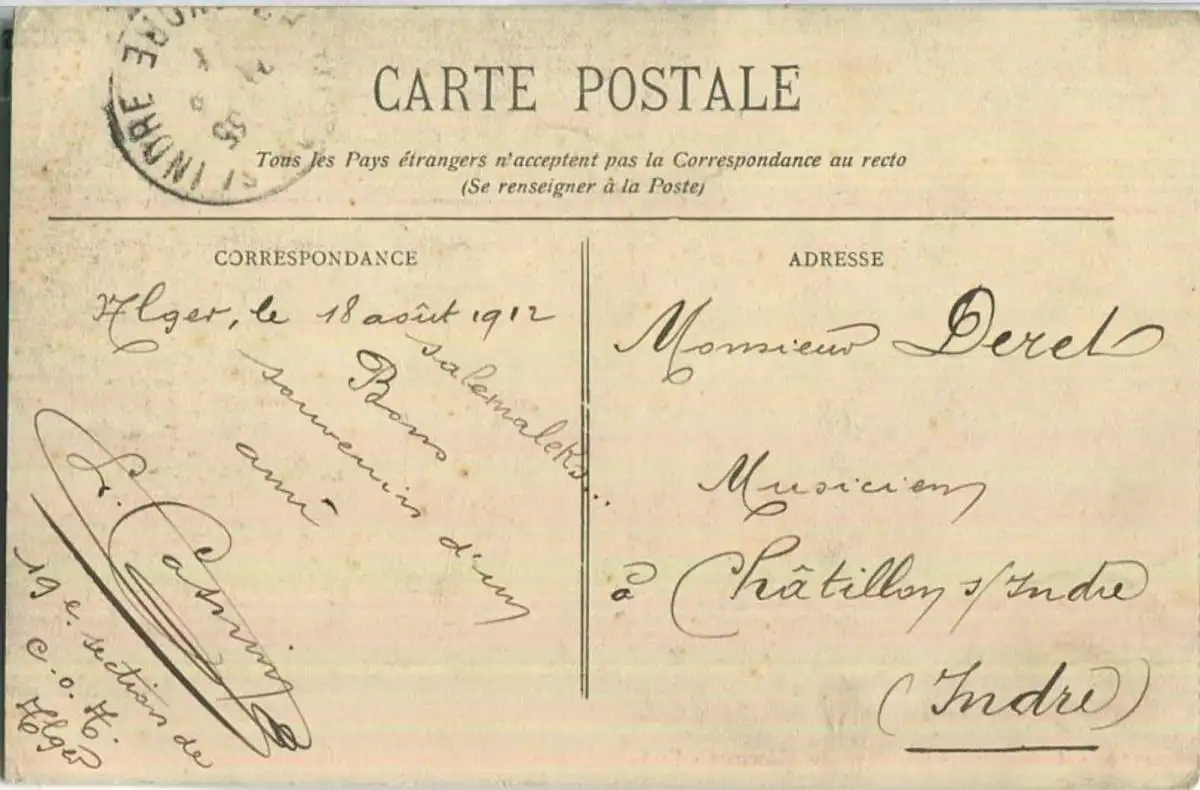 CARTE POSTALE
Tous les Pays étrangers n'acceptent pas la Correspondance au recto
(Se renseigner à la Poste)
INDRE
CORRESPONDANCE
Alger, le 18 août 1912
salemaleks..
Bons
souvenirs d'un
ami
L. Casmin
19e section de
C.O.A.
Alger
ADRESSE
Monsieur Deret
Musicien
à Châtillon s/Indre
(Indre)